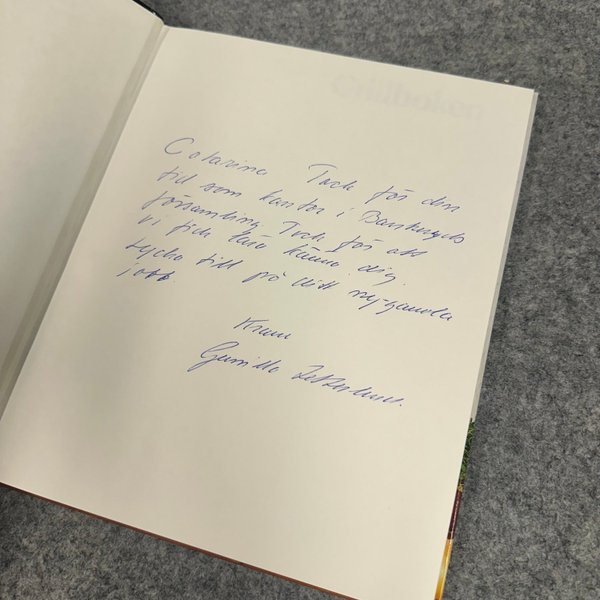 Grillboken
Catarina Tack för den
tid som kantor i Bankeryds
församling Tack för att
vi fick lära känna dig.
Lycka till på ditt ny-gamla
jobb.
Kram
Gunilla